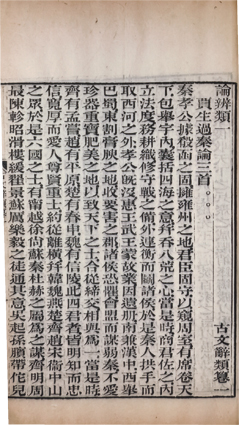 論辨類一　古文辭類纂
賈生過秦論三首
秦孝公據殽函之固擁雍州之地君臣固守以窺周室有席卷天
下包舉宇內囊括四海之意并吞八荒之心當是時商君佐之內
立法度務耕織修守戰之備外連衡而鬬諸侯於是秦人拱手而
取西河之外孝公既沒惠王武王蒙故業因遺冊南兼漢中西舉
巴蜀東割膏腴之地收要害之郡諸侯恐懼會盟而謀弱秦不愛
珍器重寶肥美之地以致天下之士合從締交相與為一當是時
齊有孟嘗趙有平原楚有春申魏有信陵此四君者皆明知而忠
信寬厚而愛人尊賢重士約從離橫并韓魏燕楚齊趙宋衛中山
之眾於是六國之士有甯越徐尚蘇秦杜赫之屬為之謀齊明周
最陳軫昭滑樓緩翟景蘇厲樂毅之徒通其意吳起孫臏帶佗兒